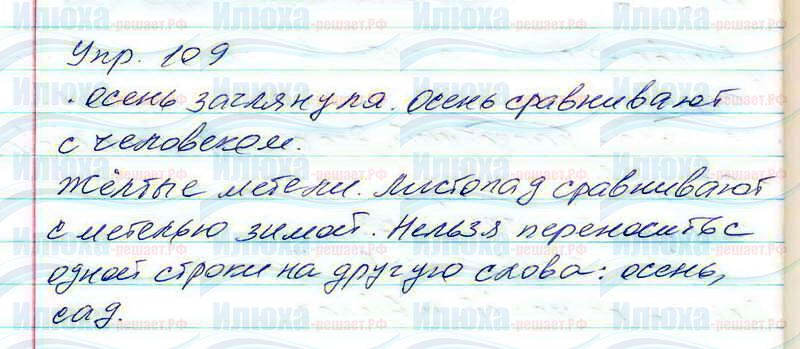 Упр. 109
· осень заглянула. Осень сравнивают
с человеком.
Жёлтые метели. Листопад сравнивают
с метелью зимой. Нельзя переносить с
одной строки на другую слова: осень,
сад.